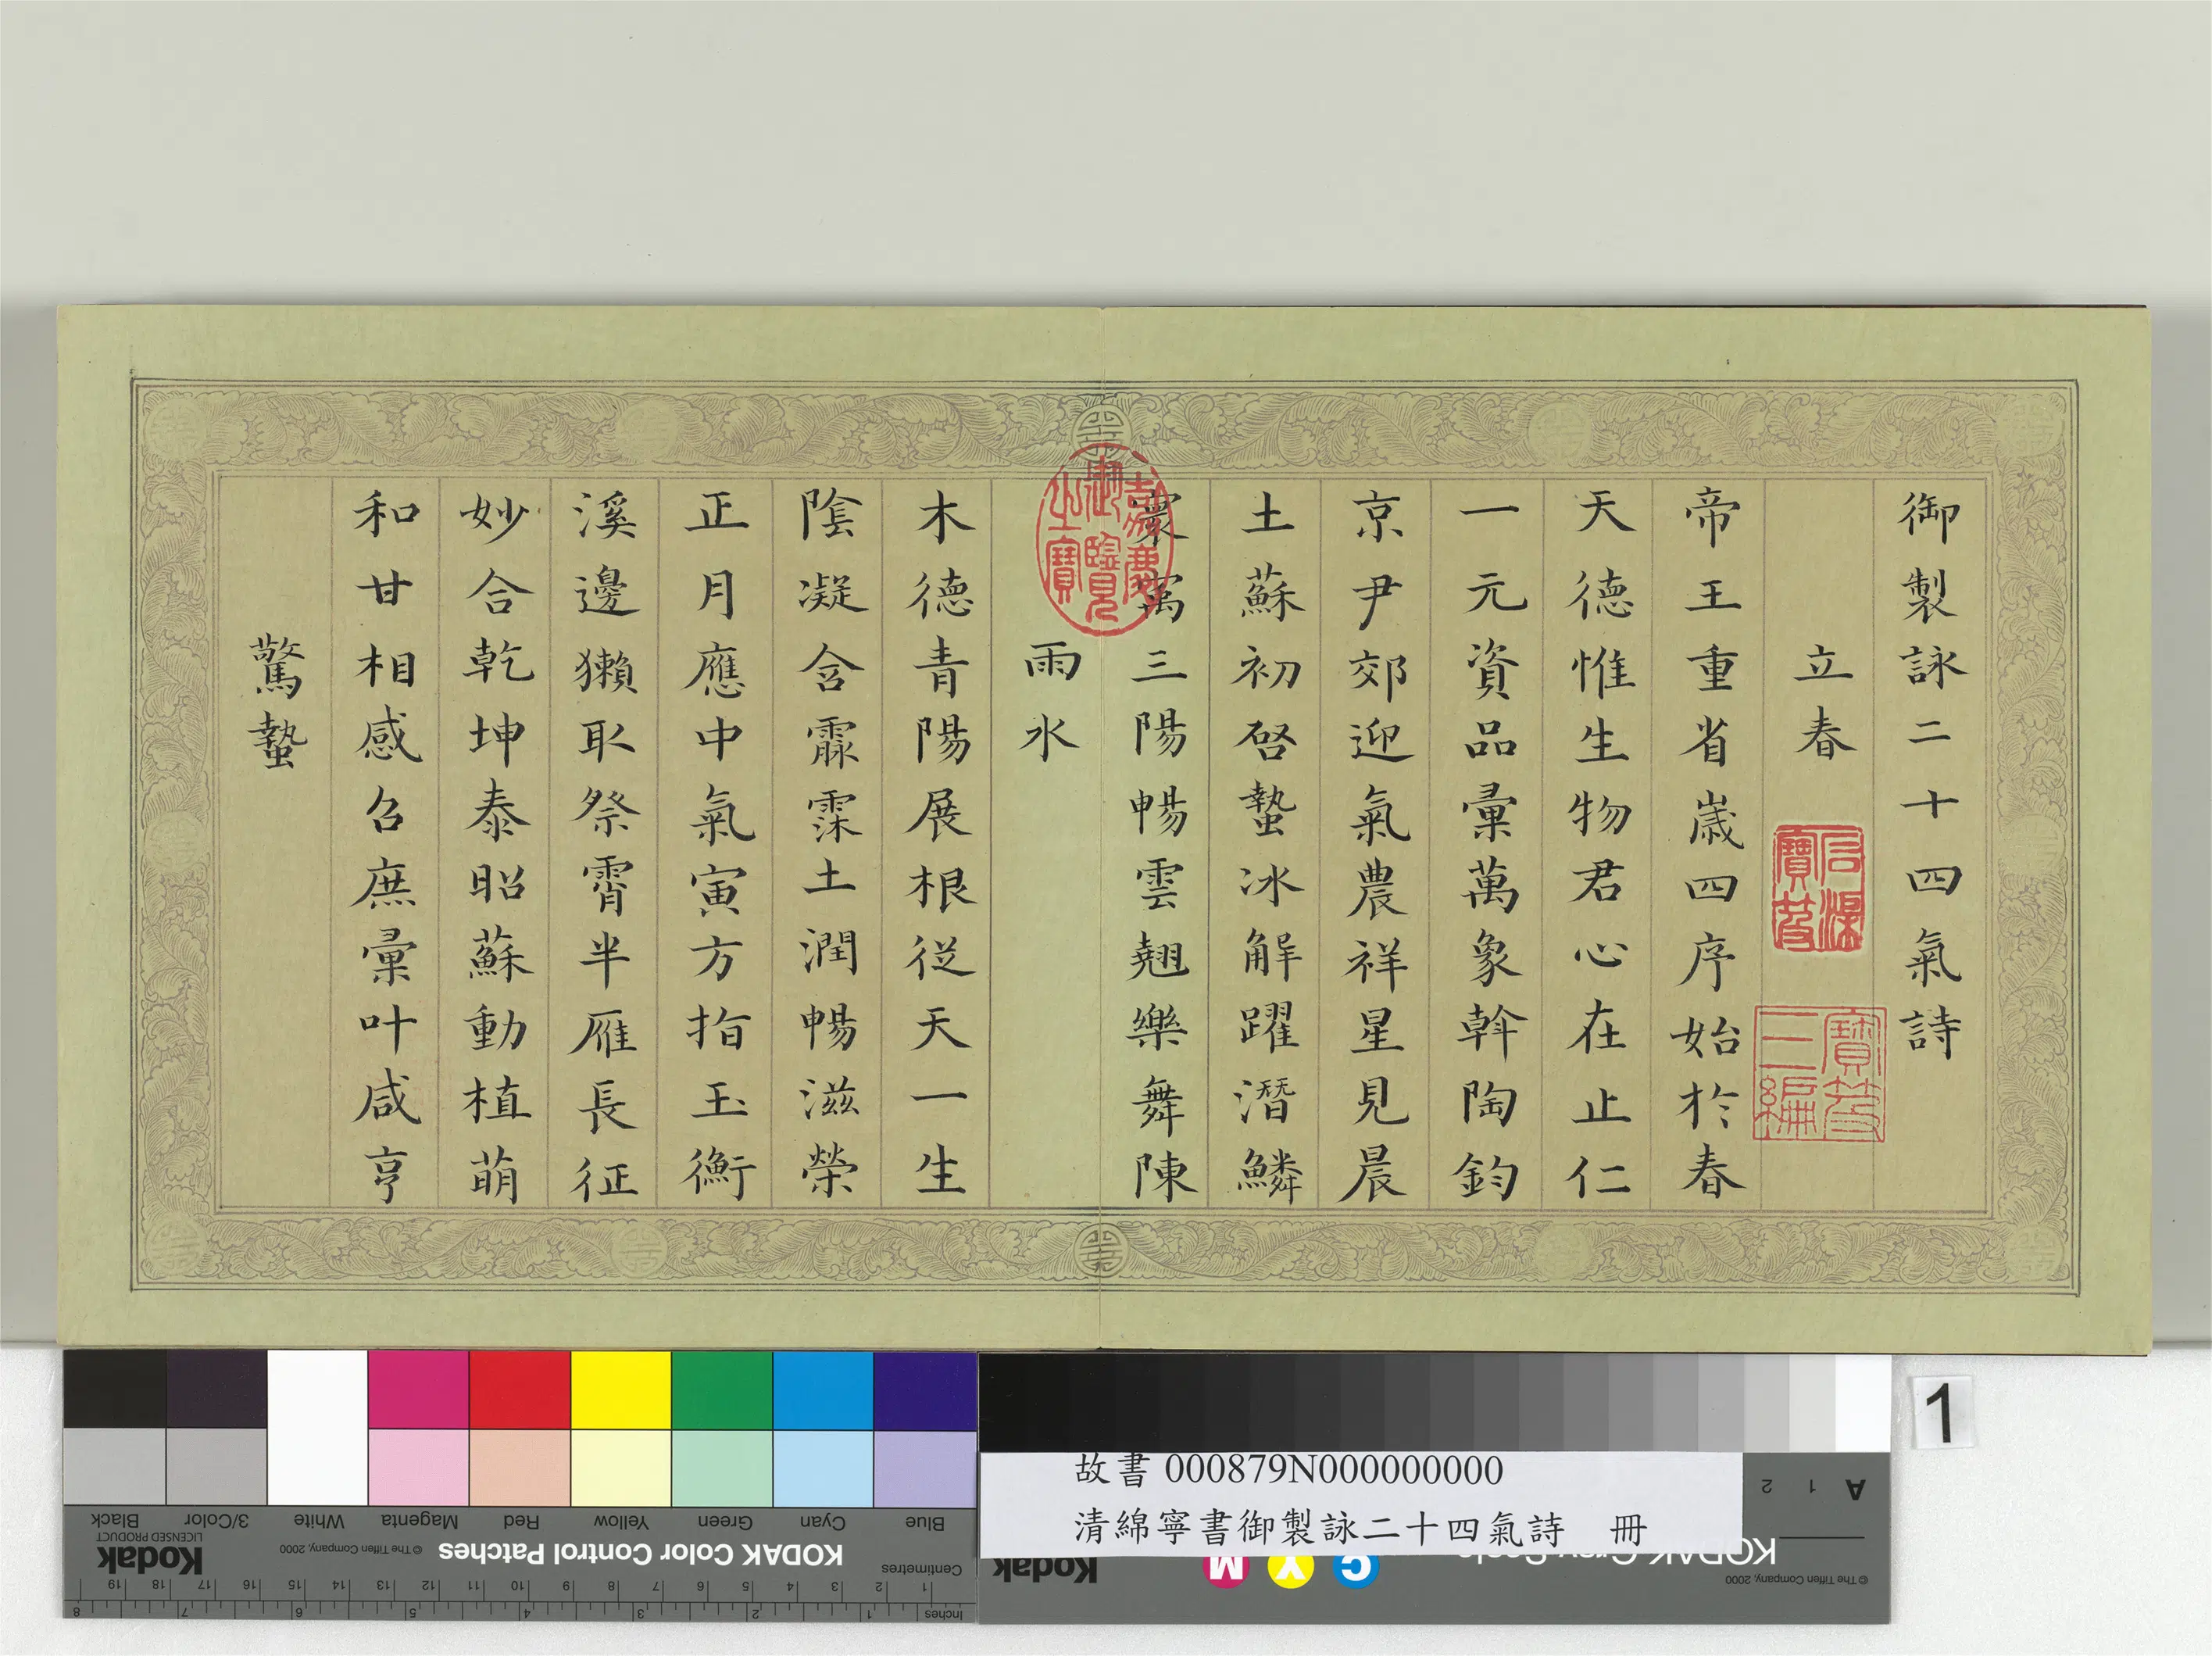 御製詠二十四氣詩
立春
石渠寶笈
寶笈三編
帝王重省嵗四序始於春
天德惟生物君心在止仁
一元資品彙萬象斡陶鈞
京尹郊迎氣農祥星見晨
土蘇初啓蟄冰解躍潛鱗
寰寓三陽暢雲翹樂舞陳
嘉慶御覽之寶
雨水
木德青陽展根從天一生
陰凝含霢霂土潤暢滋榮
正月應中氣寅方指玉衡
溪邊獺取祭霄半雁長征
妙合乾坤泰昭蘇動植萌
和甘相感召庶彙叶咸亨
驚蟄
1
故書 000879N000000000
清綿寧書御製詠二十四氣詩 冊
Blue Cyan Green Yellow Red Magenta White 3/Color Black
KODAK Color Control Patches © The Tiffen Company, 2000 Kodak
LICENSED PRODUCT
Centimetres
1 2 3 4 5 6 7 8 9 10 11 12 13 14 15 16 17 18 19
Inches 1 2 3 4 5 6 7 8
A 1 2
© The Tiffen Company, 2000
C Y M Kodak